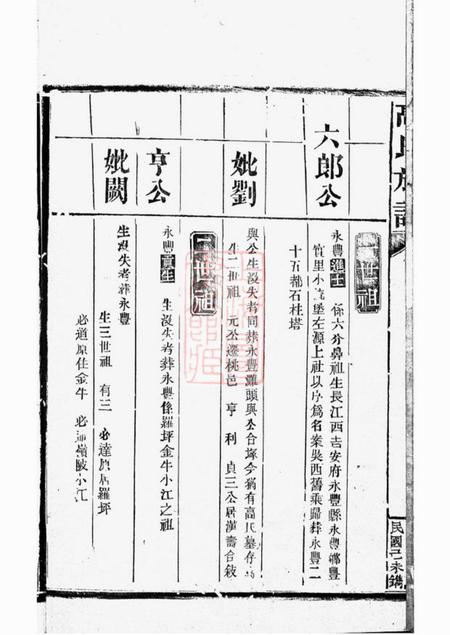 高氏族譜
一世祖
六郎公
永豐進士
係六分鼻祖生長江西吉安府永豐縣永豐鄉豐
竹里小流堡左源上社以序爲名案奘西舊乘歸葬永豐二
十五都石柱塔
妣劉
與公生沒失考同葬永豐羅頭與公合塚今猶有高氏墓存焉
生二世祖 元公遷桃邑 亨 利 貞三公居漢壽合敍
二世祖
亨公
永豐貢生
生沒失考葬永豐係羅坪金牛小江之祖
妣闕
生沒失考葬永豐
生三世祖 有三 必達原居羅坪
必道原住金牛 必通嶺陂小江
民國己未鐫